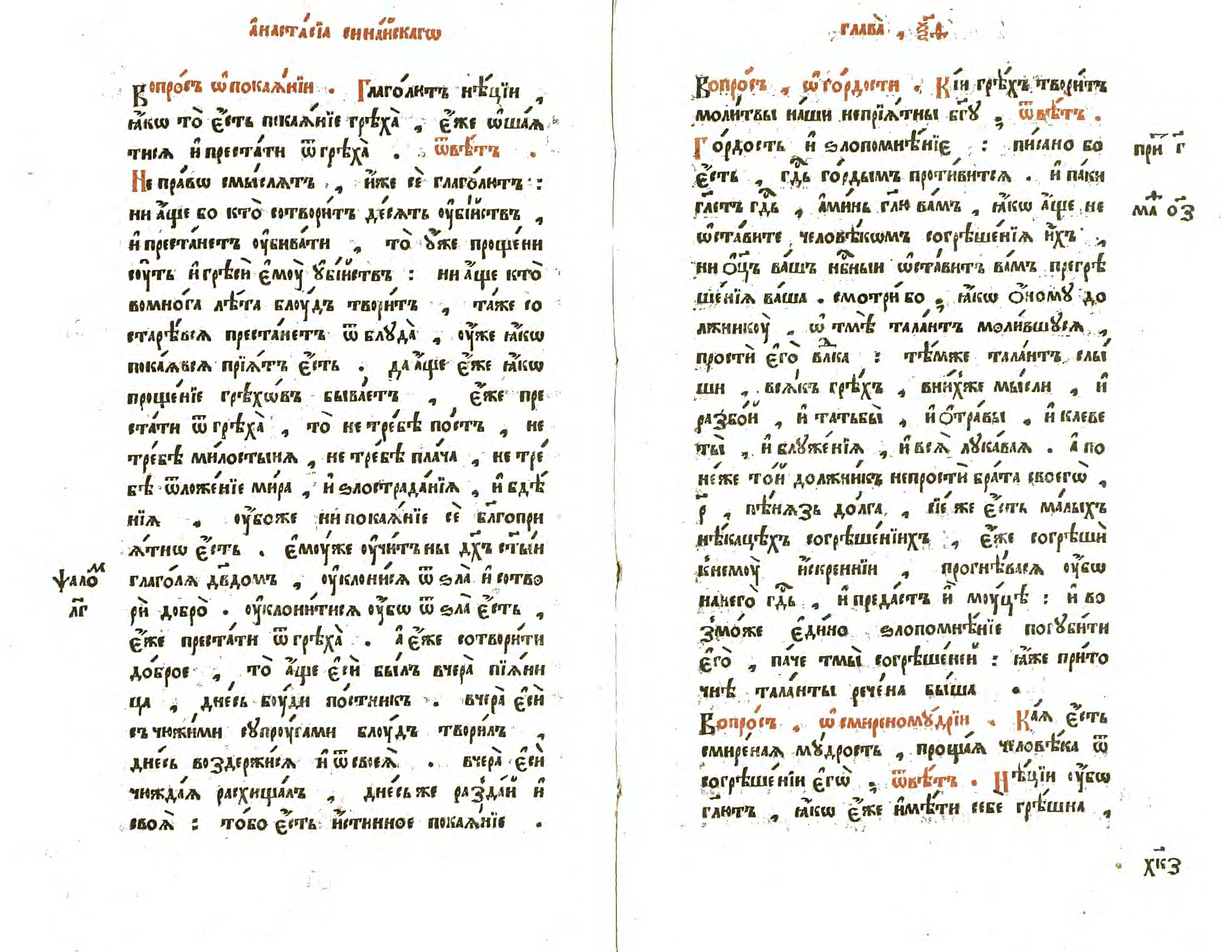 А҆наста́сїа сина́йскагѡ
Вопро́съ ѡ҆ покаѧ́нїи . Глаго́лютъ нѣ́цїи ,
ꙗ҆́кѡ то̀ є҆́сть покаѧ́нїе грѣха̀ , є҆́же ѡ҆шаѧ́
тисѧ и҆ преста́ти ѿ грѣха̀ . ѿвѣ́тъ .
Не пра́вѡ смы́слѧтъ , и҆́же сѐ глаго́лютъ :
ни а҆́ще бо кто̀ сотвори́тъ де́сѧть ᲂу҆бі́йствъ ,
и҆ преста́нетъ ᲂу҆бива́ти , то̀ ᲂу҆́же проще́ни
сꙋ́ть и҆ грѣсѝ є҆мꙋ̀ ᲂу҆бі́йствъ : ни а҆́ще кто̀
во мно́га лѣ́та блꙋ́дъ твори́тъ , та́же со
старѣ́всѧ преста́нетъ ѿ блꙋда̀ , ᲂу҆́же ꙗ҆́кѡ
покаѧ́всѧ прїѧ́тъ є҆́сть . да а҆́ще є҆́же ꙗ҆́кѡ
проще́нїе грѣхѡ́въ быва́етъ , є҆́же пре
ста́ти ѿ грѣха̀ , то̀ не тре́бѣ по́стъ , не
тре́бѣ ми́лостынѧ , не тре́бѣ пла́ча , не тре́
бѣ ѿложе́нїе ми́ра , и҆ ѕлострада́нїѧ , и҆ бдѣ́
нїѧ . ᲂу҆́боже ни покаѧ́нїе сѐ бл҃гопри
ѧ́тнѡ є҆́сть . є҆мꙋ́же ᲂу҆чи́тъ ны̀ дх҃ъ ст҃ы́и
глаго́лѧ дв҃домъ , ᲂу҆клони́сѧ ѿ ѕла̀ и҆ сотво
рѝ добро̀ . ᲂу҆клони́тисѧ ᲂу҆́бѡ ѿ ѕла̀ є҆́сть ,
є҆́же преста́ти ѿ грѣха̀ . а҆ є҆́же сотвори́ти
до́брое , то̀ а҆́ще є҆сѝ бы́лъ вчера̀ пїѧ́ни
ца , дне́сь бꙋ́ди по́стникъ . вчера̀ є҆сѝ
съ чюжи́ми сꙋпрꙋ́гами блꙋ́дъ твори́лъ ,
дне́сь воздержи́сѧ и҆ ѿ своеѧ̀ . вчера̀ є҆сѝ
чюжда́ѧ расхища́лъ , дне́сь же разда́й и҆
своѧ̀ : то́ бо є҆́сть и҆́стинное покаѧ́нїе .
ѱало́м
л҃г
глава̀ , ѯ҃д
Вопро́съ , ѡ҆ го́рдости . Кі́и грѣ́хъ твори́тъ
моли́твы на́ши непрїѧ́тны бг҃ꙋ , ѿвѣ́тъ .
Го́рдость и҆ ѕлопомнѣ́нїе : пи́сано бо
є҆́сть , гд҃ь го́рдымъ проти́витсѧ . и҆ па́ки
гл҃етъ гд҃ь , а҆ми́нь гл҃ю ва́мъ , ꙗ҆́кѡ а҆́ще не
ѡ҆ста́вите человѣ́кѡмъ согрѣше́нїѧ и҆́хъ ,
ни ѻ҆ц҃ъ ва́шъ нб҃ныи ѡ҆ста́витъ ва́мъ прегрѣ
ше́нїѧ ва́ша . смотри́ бо , ꙗ҆́кѡ ѻ҆́номꙋ до
лжникꙋ̀ , ѡ҆ тмѣ̀ тала́нтъ моли́вшꙋсѧ ,
простѝ є҆го̀ вл҃ка : тѣ́мже тала́нтъ слы́
ши , всѧ́къ грѣ́хъ , вни́хже мы́сли , и҆
разбо́й , и҆ татьбы̀ , и҆ ѻ҆тра́вы , и҆ клеве
ты̀ , и҆ блꙋже́нїѧ , и҆ всѧ̀ лꙋка́ваѧ . а҆ по
не́же то́й должни́къ непростѝ бра́та своегѡ̀ ,
р҃ , пѣ́нѧзь до́лга , сїе́ же є҆́сть ма́лыхъ
нѣ́кацѣхъ согрѣше́нїихъ , є҆́же согрѣшѝ
кнемꙋ̀ и҆́скреннїи , прогнѣ́васѧ ᲂу҆́бѡ
нанего̀ гд҃ь , и҆ преда́стъ и҆̀ мꙋ́цѣ : и҆ во
змо́же є҆ди́но ѕлопомнѣ́нїе погꙋби́ти
є҆го̀ , па́че тмы̀ согрѣше́ней : ꙗ҆́же при́то
чнѣ тала́нты рече́на бы́ша .
Вопро́съ , ѡ҆ смиреномꙋ́дрїи . Ка́ѧ є҆́сть
смире́наѧ мꙋ́дрость , проща́ѧ человѣ́ка ѿ
согрѣше́нїи є҆гѡ̀ , ѿвѣ́тъ . Нѣ́цїи ᲂу҆́бѡ
гл҃ютъ , ꙗ҆́кѡ є҆́же и҆мѣ́ти себѐ грѣ́шна ,
при̑ г҃
ма̑ ѻ҃з
хк҃з